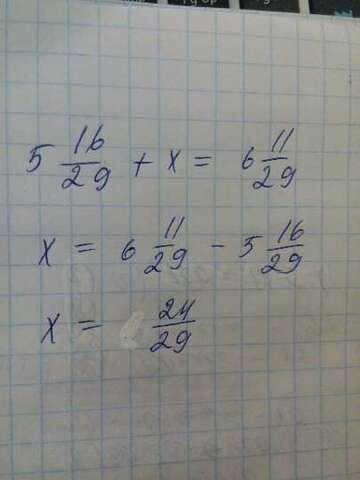 5 16/29 + x = 6 11/29
x = 6 11/29 - 5 16/29
x = 24/29